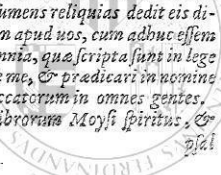 sumens reliquias dedit eis di-
m apud uos, cum adhuc essem
mnia, quæ scripta sunt in lege
e me, & prædicari in nomine
ccatorum in omnes gentes.
ibrorum Moysi spiritus, &
psal